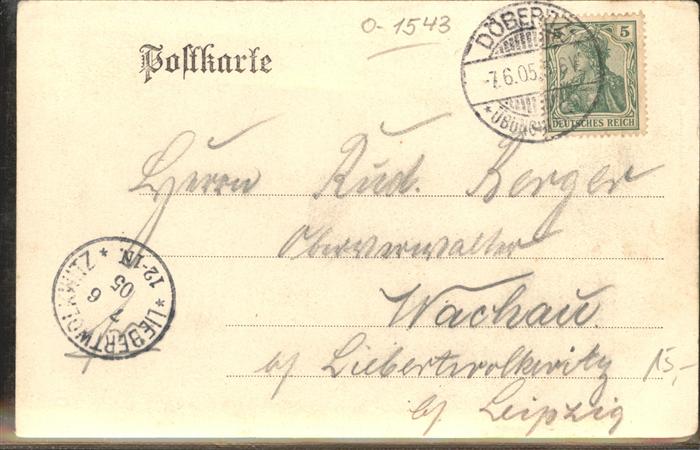 O-1543
Postkarte
DÖBERITZ
-7.6.05.
*ÜBUNGS
5
DEUTSCHES REICH
Herrn Rud. Berger
Oberverwalter
Wachau.
b/ Liebertwolkwitz
b/ Leipzig
15,-
*LIEBERTWOLKWITZ*
7
6
05
12-1N.